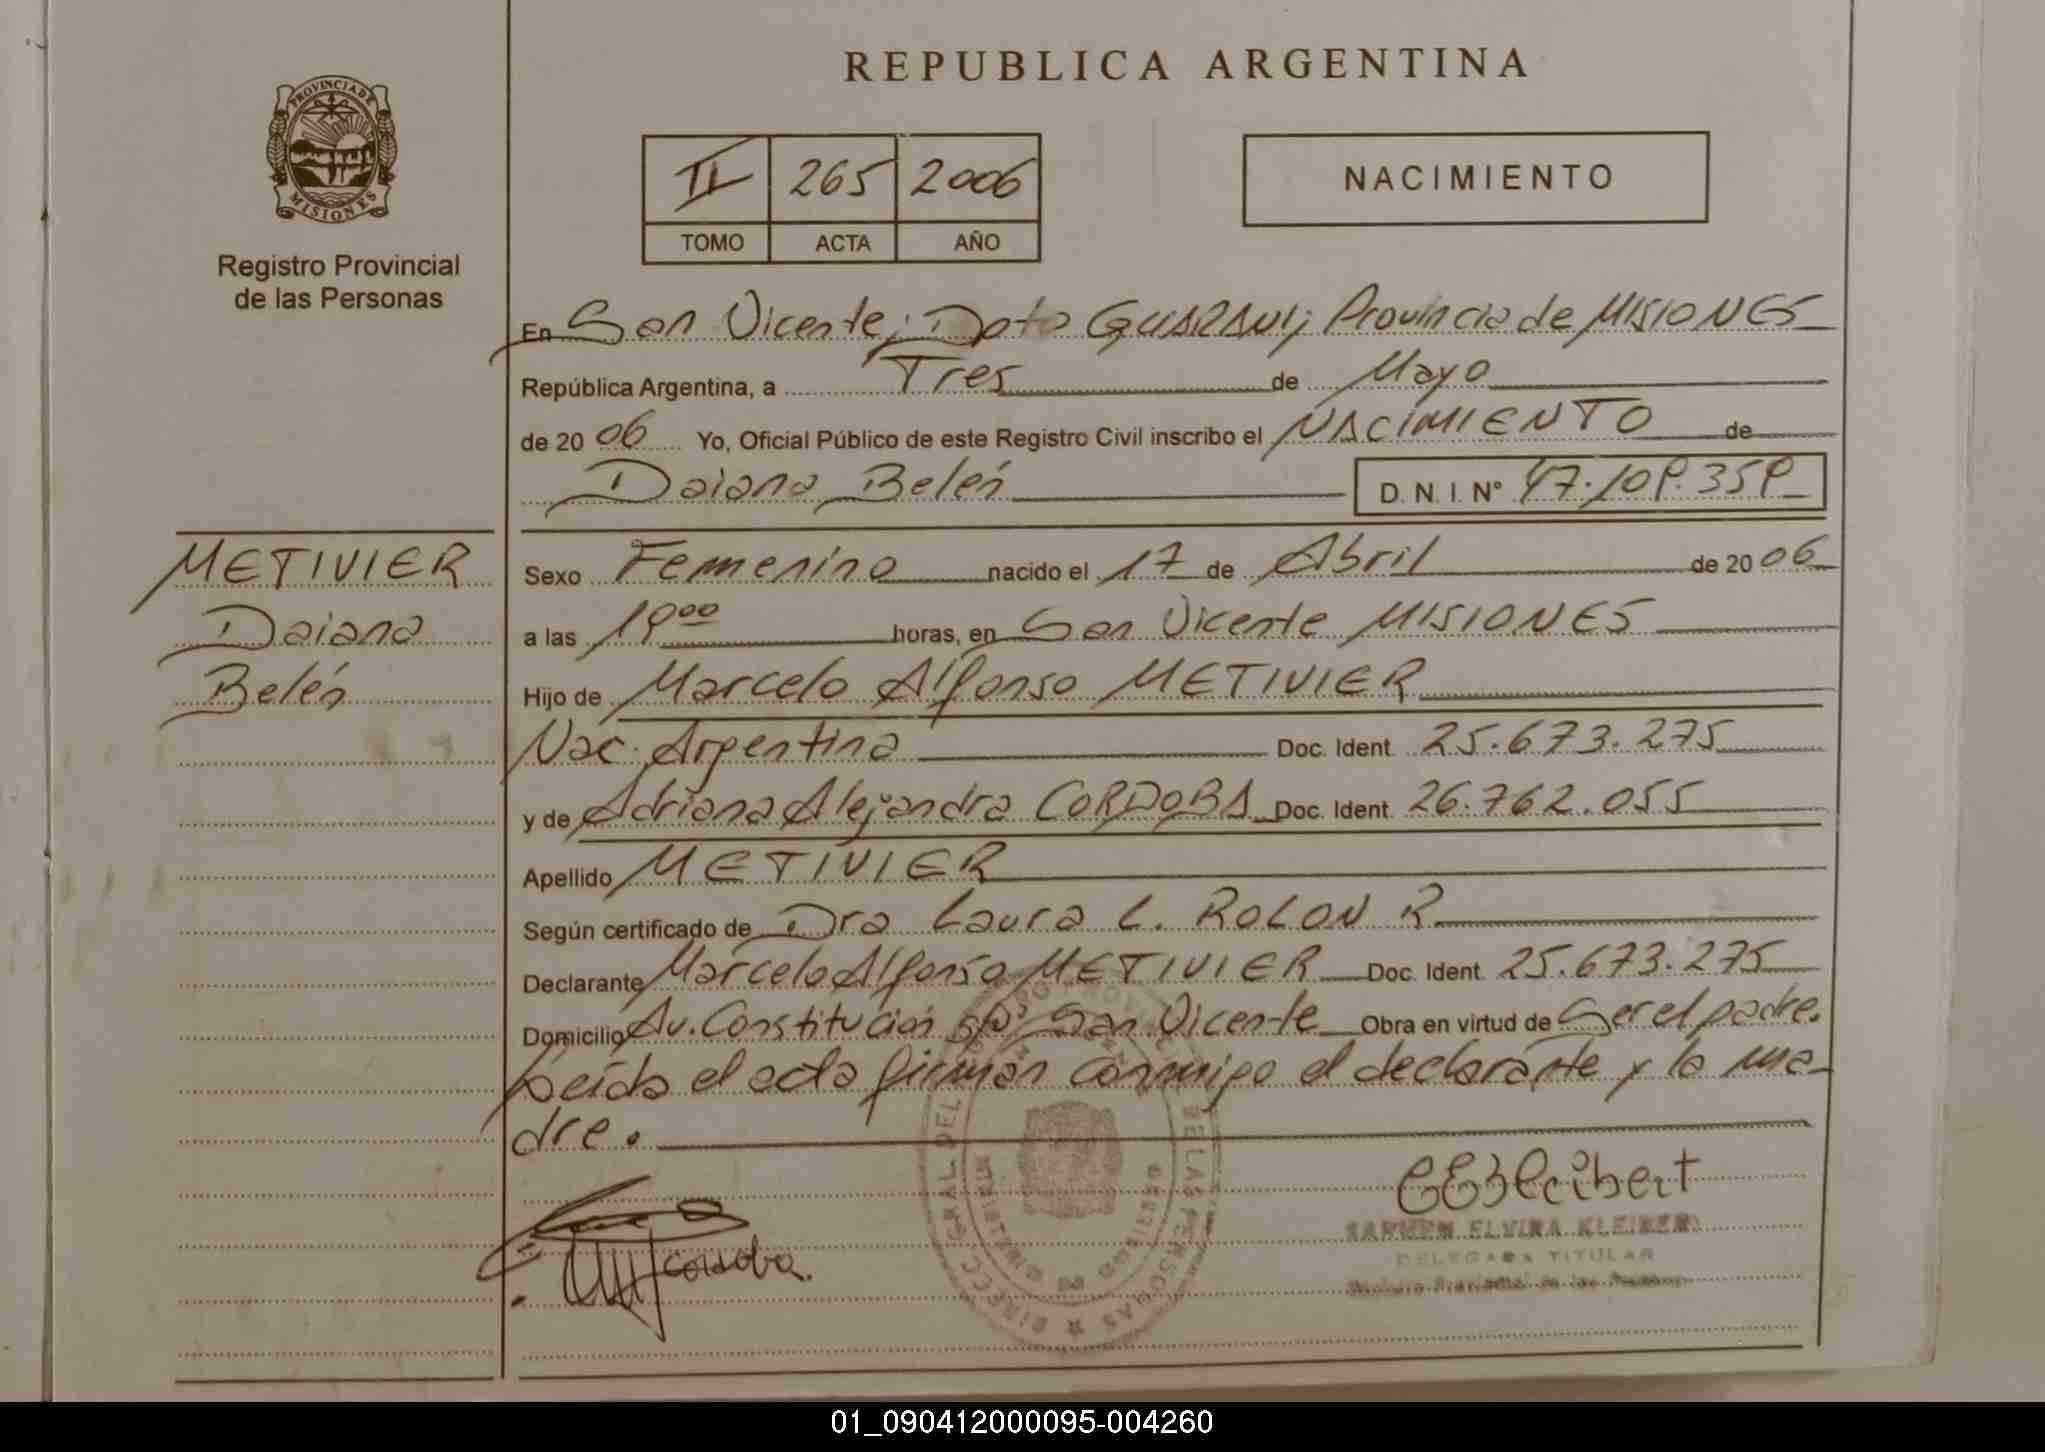 REPUBLICA ARGENTINA
PROVINCIA DE MISIONES
Registro Provincial
de las Personas
II 265 2006
TOMO ACTA AÑO
NACIMIENTO
En San Vicente; Dpto GUARANI; Provincia de MISIONES
República Argentina, a Tres de Mayo
de 20 06 Yo, Oficial Público de este Registro Civil inscribo el NACIMIENTO de
Daiana Belén D. N. I. N° 47.109.359
METIVIER
Daiana
Belén
Sexo Femenino nacido el 17 de Abril de 20 06
a las 19 00 horas, en San Vicente MISIONES
Hijo de Marcelo Alfonso METIVIER
Nac. Argentina Doc. Ident. 25.673.275
y de Adriana Alejandra CORDOBA Doc. Ident. 26.762.055
Apellido METIVIER
Según certificado de Dra Laura L. ROLON R
Declarante Marcelo Alfonso METIVIER Doc. Ident. 25.673.275
Domicilio Av. Constitución San Vicente Obra en virtud de Ser el padre.
Leída el acta firman conmigo el declarante y la ma-
dre.
Cordoba.
DELEGADA TITULAR
01_090412000095-004260